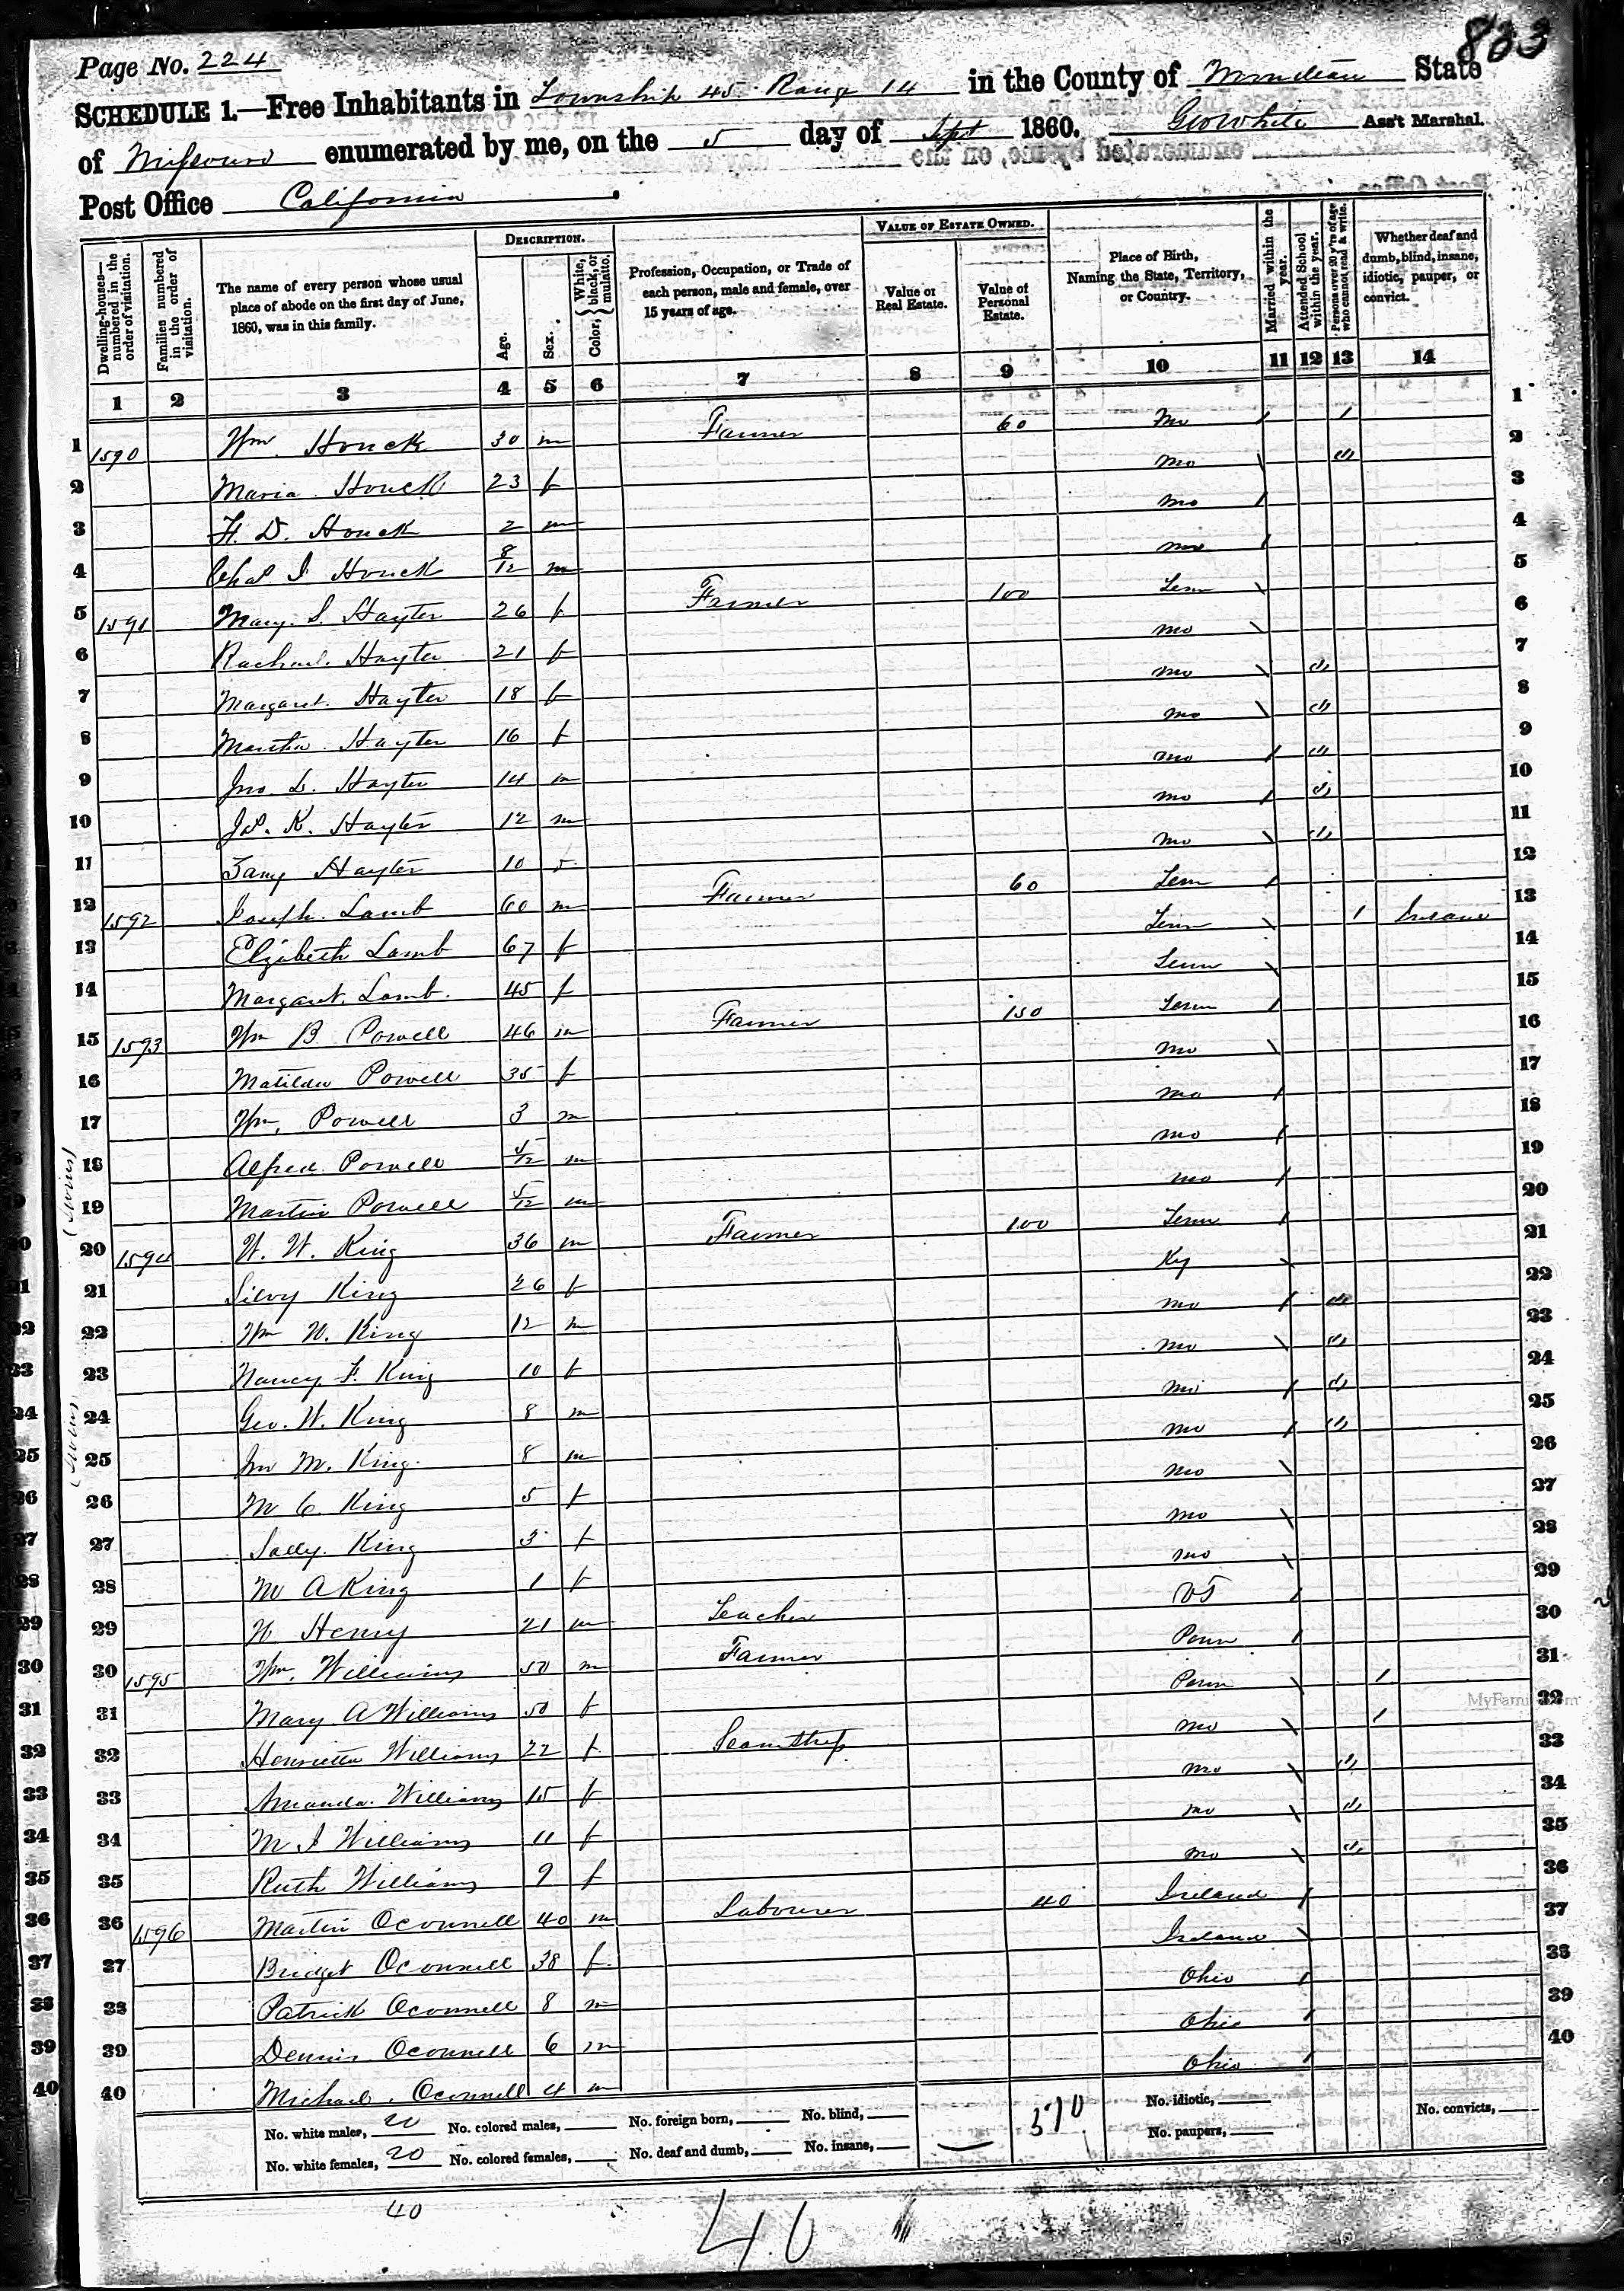 833
Page No. 224
SCHEDULE 1.—Free Inhabitants in Township 45 Range 14 in the County of State
of Missouri enumerated by me, on the 5 day of Sept 1860. Geo White Ass't Marshal.
Post Office California
Dwelling-houses—numbered in the order of visitation. Families numbered in the order of visitation. The name of every person whose usual place of abode on the first day of June, 1860, was in this family. DESCRIPTION. Age. Sex. Color, {White, black, or mulatto. Profession, Occupation, or Trade of each person, male and female, over 15 years of age. VALUE OF ESTATE OWNED. Value of Real Estate. Value of Personal Estate. Place of Birth, Naming the State, Territory, or Country. Married within the year. Attended School within the year. Persons over 20 y'rs of age who cannot read & write. Whether deaf and dumb, blind, insane, idiotic, pauper, or convict.
1 2 3 4 5 6 7 8 9 10 11 12 13 14
1 1590 Wm. Houck 30 m Farmer 60 Mo / 1 1
2 Maria Houck 23 f mo \ (1) 2
3 H. D. Houck 2 m mo / 3
4 Chas I Houck 8/12 m mo / 4
5 1591 Mary S. Hayter 26 f Farmer 100 Tenn \ 5
6 Rachael Hayter 21 f mo \ 6
7 Margaret Hayter 18 f mo \ (1) 7
8 Martha Hayter 16 f mo \ (1) 8
9 Jno. L. Hayter 14 m mo / (1) 9
10 Js. K. Hayter 12 m mo / (1) 10
11 Hayter 10 mo \ (1) 11
12 1592 Joseph Lamb 60 m Farmer 60 Tenn / 12
13 Elizibeth Lamb 67 f Tenn \ 1 Insane 13
14 Margaret Lamb 45 f Tenn \ 14
15 1593 Wm B Powell 46 m Farmer 150 Tenn / 15
16 Matilda Powell 35 f mo \ 16
17 Wm, Powell 3 m mo / 17
18 Alfred Powell 5/12 m mo / 18
(Twins)
19 Martin Powell 5/12 m mo / 19
20 1594 W. W. King 36 m Farmer 100 Tenn / 20
21 Silvy King 26 f Ky \ 21
22 Wm W. King 12 m mo / (1) 22
23 Nancy F. King 10 f mo \ (1) 23
24 Geo. W. King 8 m mo / (1) 24
(Twins)
25 Jno M. King 8 m mo / (1) 25
26 M C King 5 f mo \ 26
27 Sally King 3 f mo \ 27
28 M A King 1 f mo \ 28
29 W Henry 21 m Teacher VT / 29
30 1595 Wm. Williams 50 m Farmer Penn / 30
31 Mary A Williams 50 f Penn \ 1 31
32 Henrietta Williams 22 f Seamstress mo \ 1 32
33 Amanda Williams 15 f mo \ (1) 33
34 M J Williams 11 f mo \ (1) 34
35 Ruth Williams 9 f mo \ (1) 35
36 1596 Martin Oconnell 40 m Labourer 40 Ireland / 36
37 Bridget Oconnell 38 f Ireland \ 37
38 Patrick Oconnell 8 m Ohio / 38
39 Dennis Oconnell 6 m Ohio / 39
40 Michael Oconnell 4 m Ohio / 40
No. white males, 20 No. colored males, No. foreign born, No. blind, 370 No. idiotic, No. convicts,
No. white females, 20 No. colored females, No. deaf and dumb, No. insane, No. paupers,
40
40